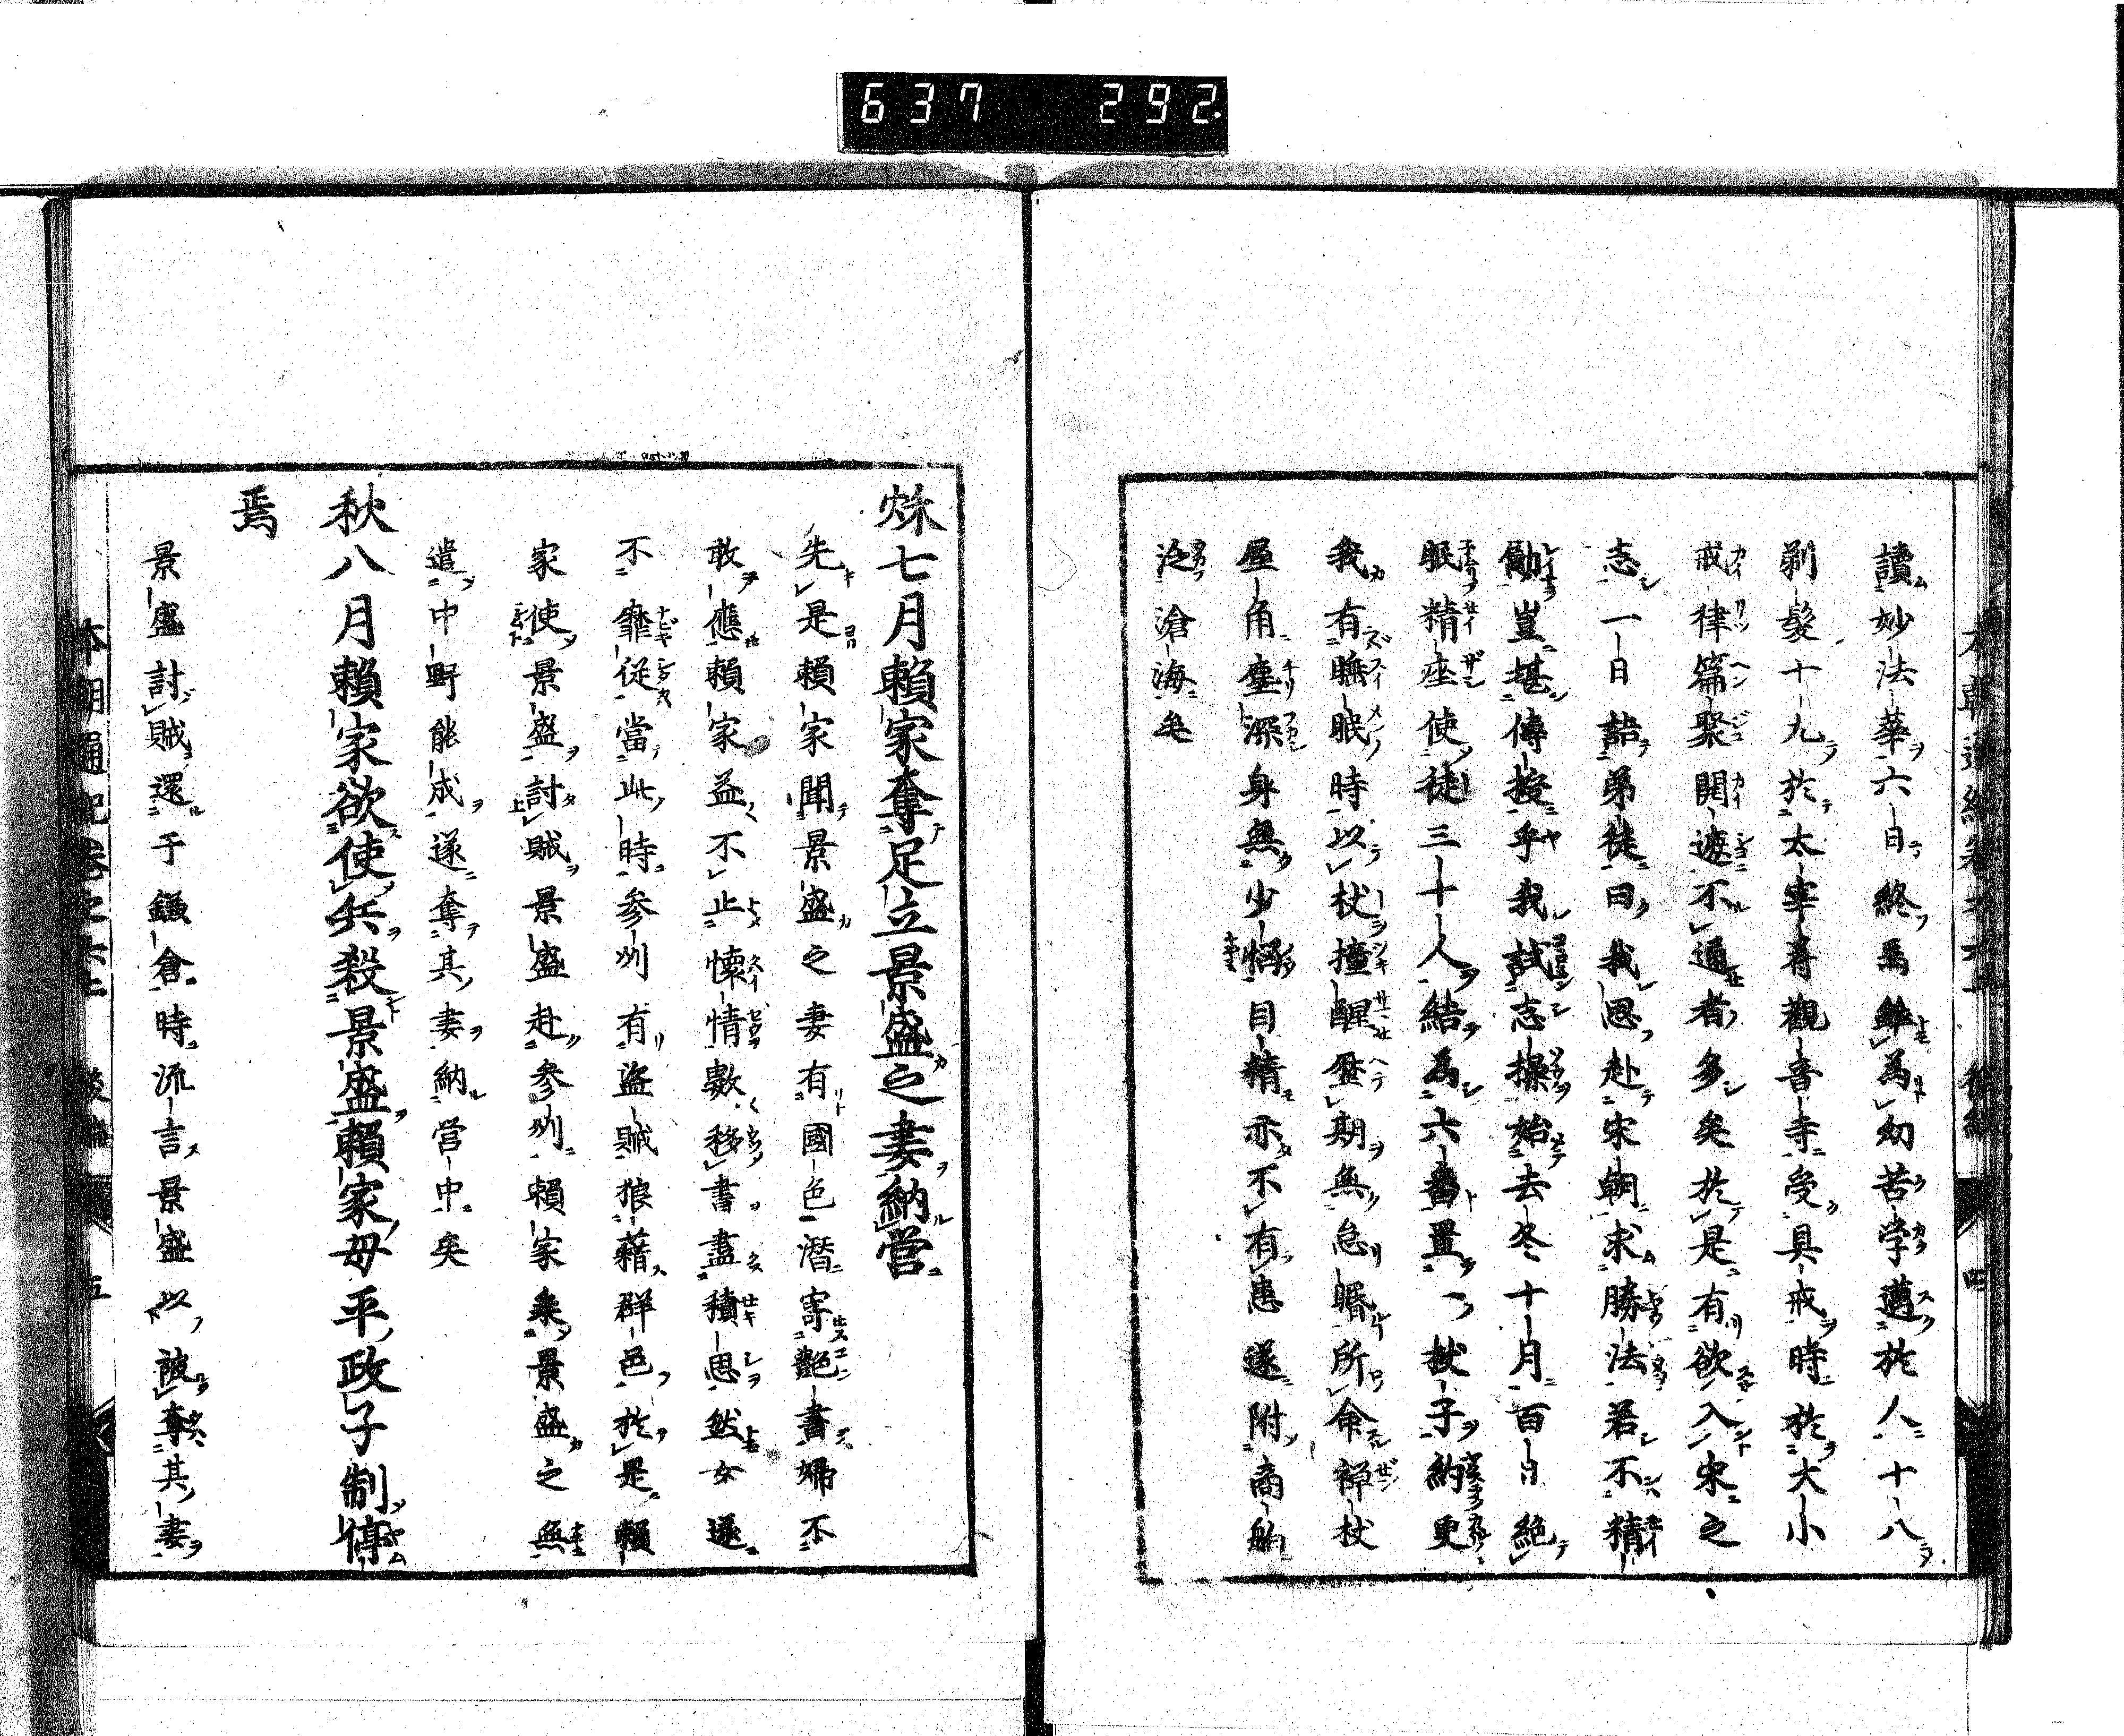 637 292
讀妙法華六日終焉雖為幼苦学邁於人十八
剃髮十九於太宰府觀音寺受具戒時於大小
戒律篇聚開遮不通者多矣於是有欲入宋之
志一日語弟徒曰我思赴宋朝求勝法若不精
勵豈堪傳授乎我試志操始去冬十月百日絶
眠精座使徒三十人結為六番置一杖子約更
我有睡眠時以杖撞醒歷期無怠惛所命禅杖
屋角塵深身無少惱目精亦不有患遂附商舶
泛滄海矣
秌七月賴家奪足立景盛之妻納営
先是賴家聞景盛之妻有國色潛寄艶書婦不
敢應賴家益不止懷情數移書盡積思然女遂
不靡從當此時参州有盗賊狼藉群邑於是賴
家使景盛討賊景盛赴参州賴家乗景盛之無
遣中野能成遂奪其妻納営中矣
秋八月賴家欲使兵殺景盛賴家母平政子制停
焉
景盛討賊還于鎌倉時流言景盛以被奪其妻
本朝通紀卷之六上 後編 五